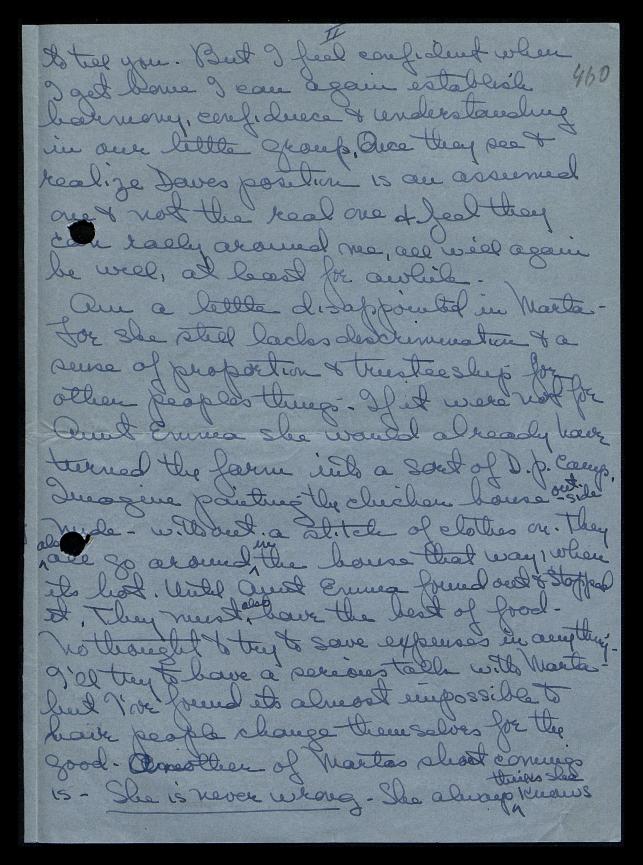 II
460
to tell you. But I feel confident when
I get home I can again establish
harmony, confidnece & understanding
in our little group. Once they see &
realize Daves position is an assumed
one & not the real one & feel they
can rally around me, all will again
be well, at least for awhile.
Am a little disappointed in Marta -
for she still lacks descrimination & a
sense of proportion & trusteeship for
other peoples things. If it were not for
Aunt Emma she would already have
turned the farm into a sort of D.P. Camp.
Imagine painting the chicken house out-side
nude - without a stitch of clothes on. They
also all go around in the house that way, when
its hot. Until Aunt Emma found out & stopped
it. They must also have the best of food -
No thought to try to save expenses in anything.
I'll try to have a serious talk with Marta -
but I've found its almost impossible to
have people change themselves for the
good. Another of Martas short comings
is - She is never wrong - She always thinks she knows